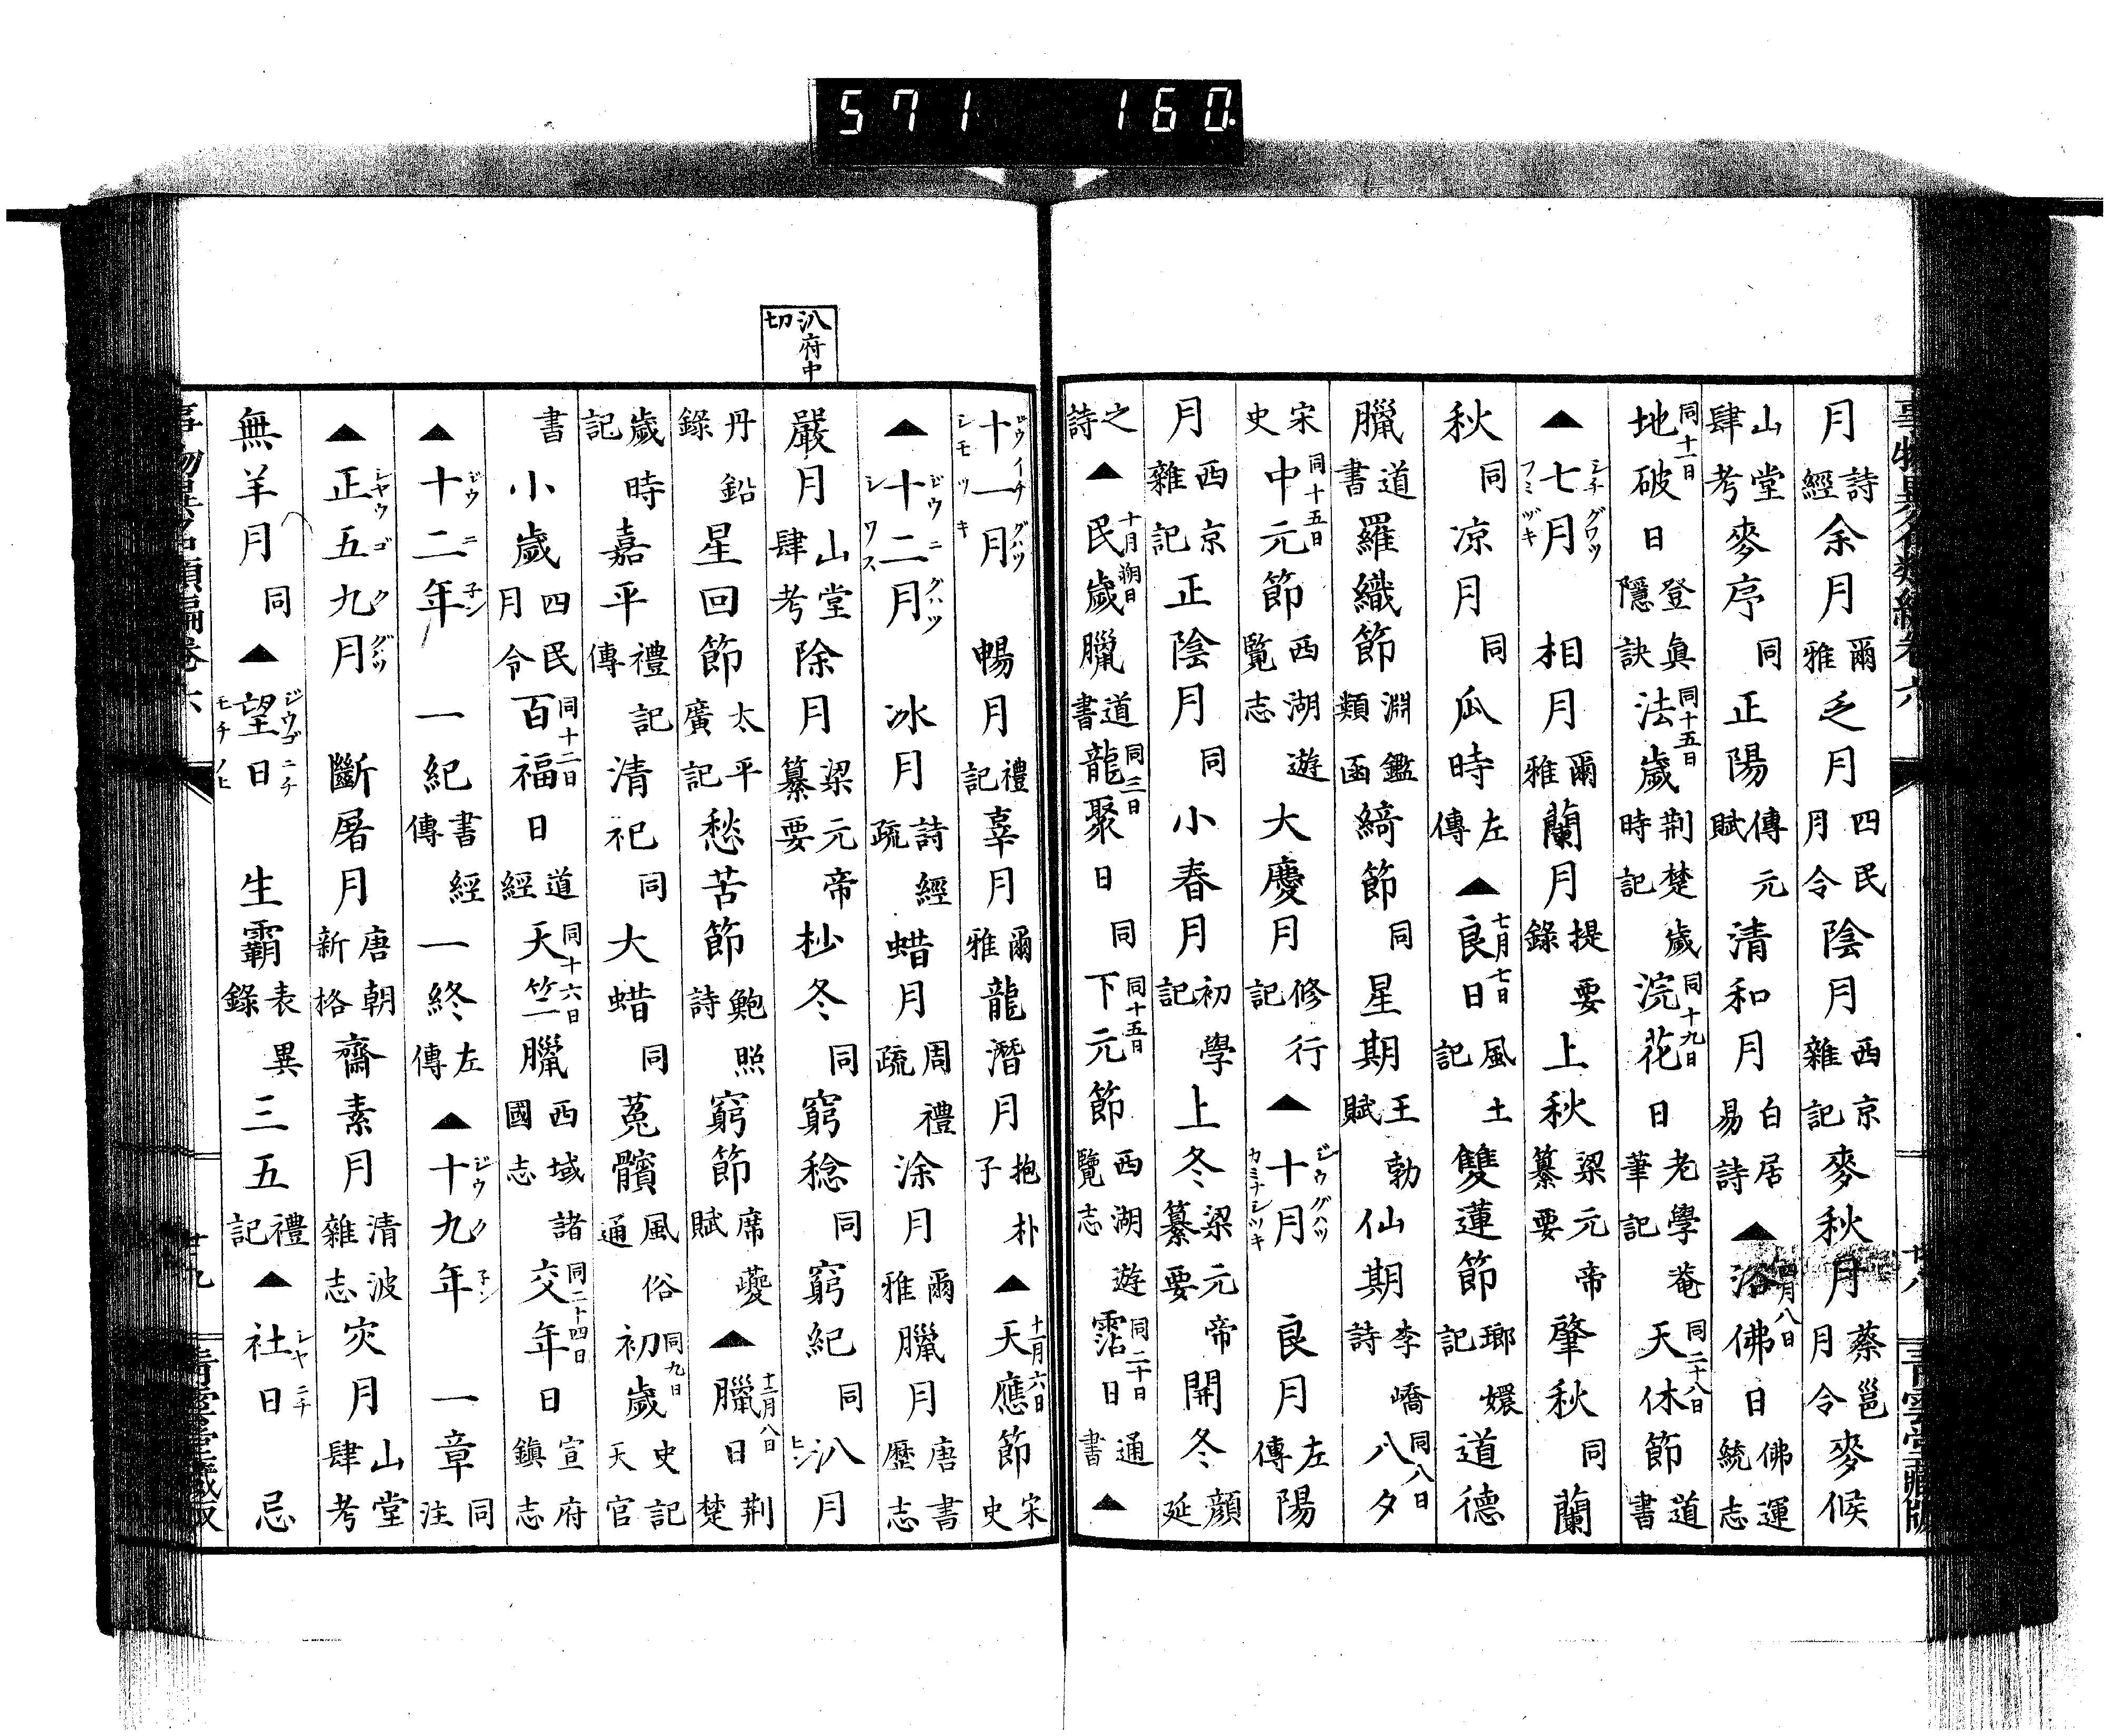 571 160
月詩經余月爾雅乏月四民月令陰月西京雜記麥秋月蔡邕月令麥候
山堂肆考麥序同正陽傅元賦清和月白居易詩▲四月八日浴佛日佛運統志
同十一日地破日登眞隱訣同十五日法歲荆楚歲時記同十九日浣花日老學菴筆記同二十八日天休節道書
▲七月シチグワツフミヅキ相月爾雅蘭月提要錄上秋梁元帝纂要肇秋同蘭
秋同凉月同瓜時左傳▲七月七日良日風土記雙蓮節瑯嬛記道德
臘道書羅織節淵鑑類函綺節同星期王勃賦仙期李嶠詩同八日八夕
宋史同十五日中元節西湖遊覽志大慶月修行記▲十月ジウグハツカミナシツキ良月左傳陽
月西京雜記正陰月同小春月初學記上冬梁元帝纂要開冬顔延
之詩▲十月朔日民歲臘道書同三日龍聚日同同十五日下元節西湖遊覽志同二十日霑日通書▲
十一月ジウイチグハツシモツキ暢月禮記辜月爾雅龍潛月抱朴子▲十一月六日天應節宋史
▲十二月ジウニグハツシワス冰月詩經疏蜡月周禮疏涂月爾雅臘月唐書歷志
汃府中切
嚴月山堂肆考除月梁元帝纂要杪冬同窮稔同窮紀同汃ヒン月
丹鉛錄星回節太平廣記愁苦節鮑照詩窮節席夔賦▲十二月八日臘日荆楚
歲時記嘉平禮記傳清祀同大蜡同菟髕風俗通同九日初歲史記天官
書小歲四民月令同十二日百福日道經同十六日天竺臘西域諸國志同二十四日交年日宣府鎭志
▲十二年ジウニネン一紀書經傳一終左傳▲十九年ジウクネン一章同注
▲正五九月シヤウゴクグワツ斷屠月唐朝新格齋素月清波雜志灾月山堂肆考
無羊月同▲望日ジウゴニチモチノヒ生霸表異錄三五禮記▲社日シヤニチ忌